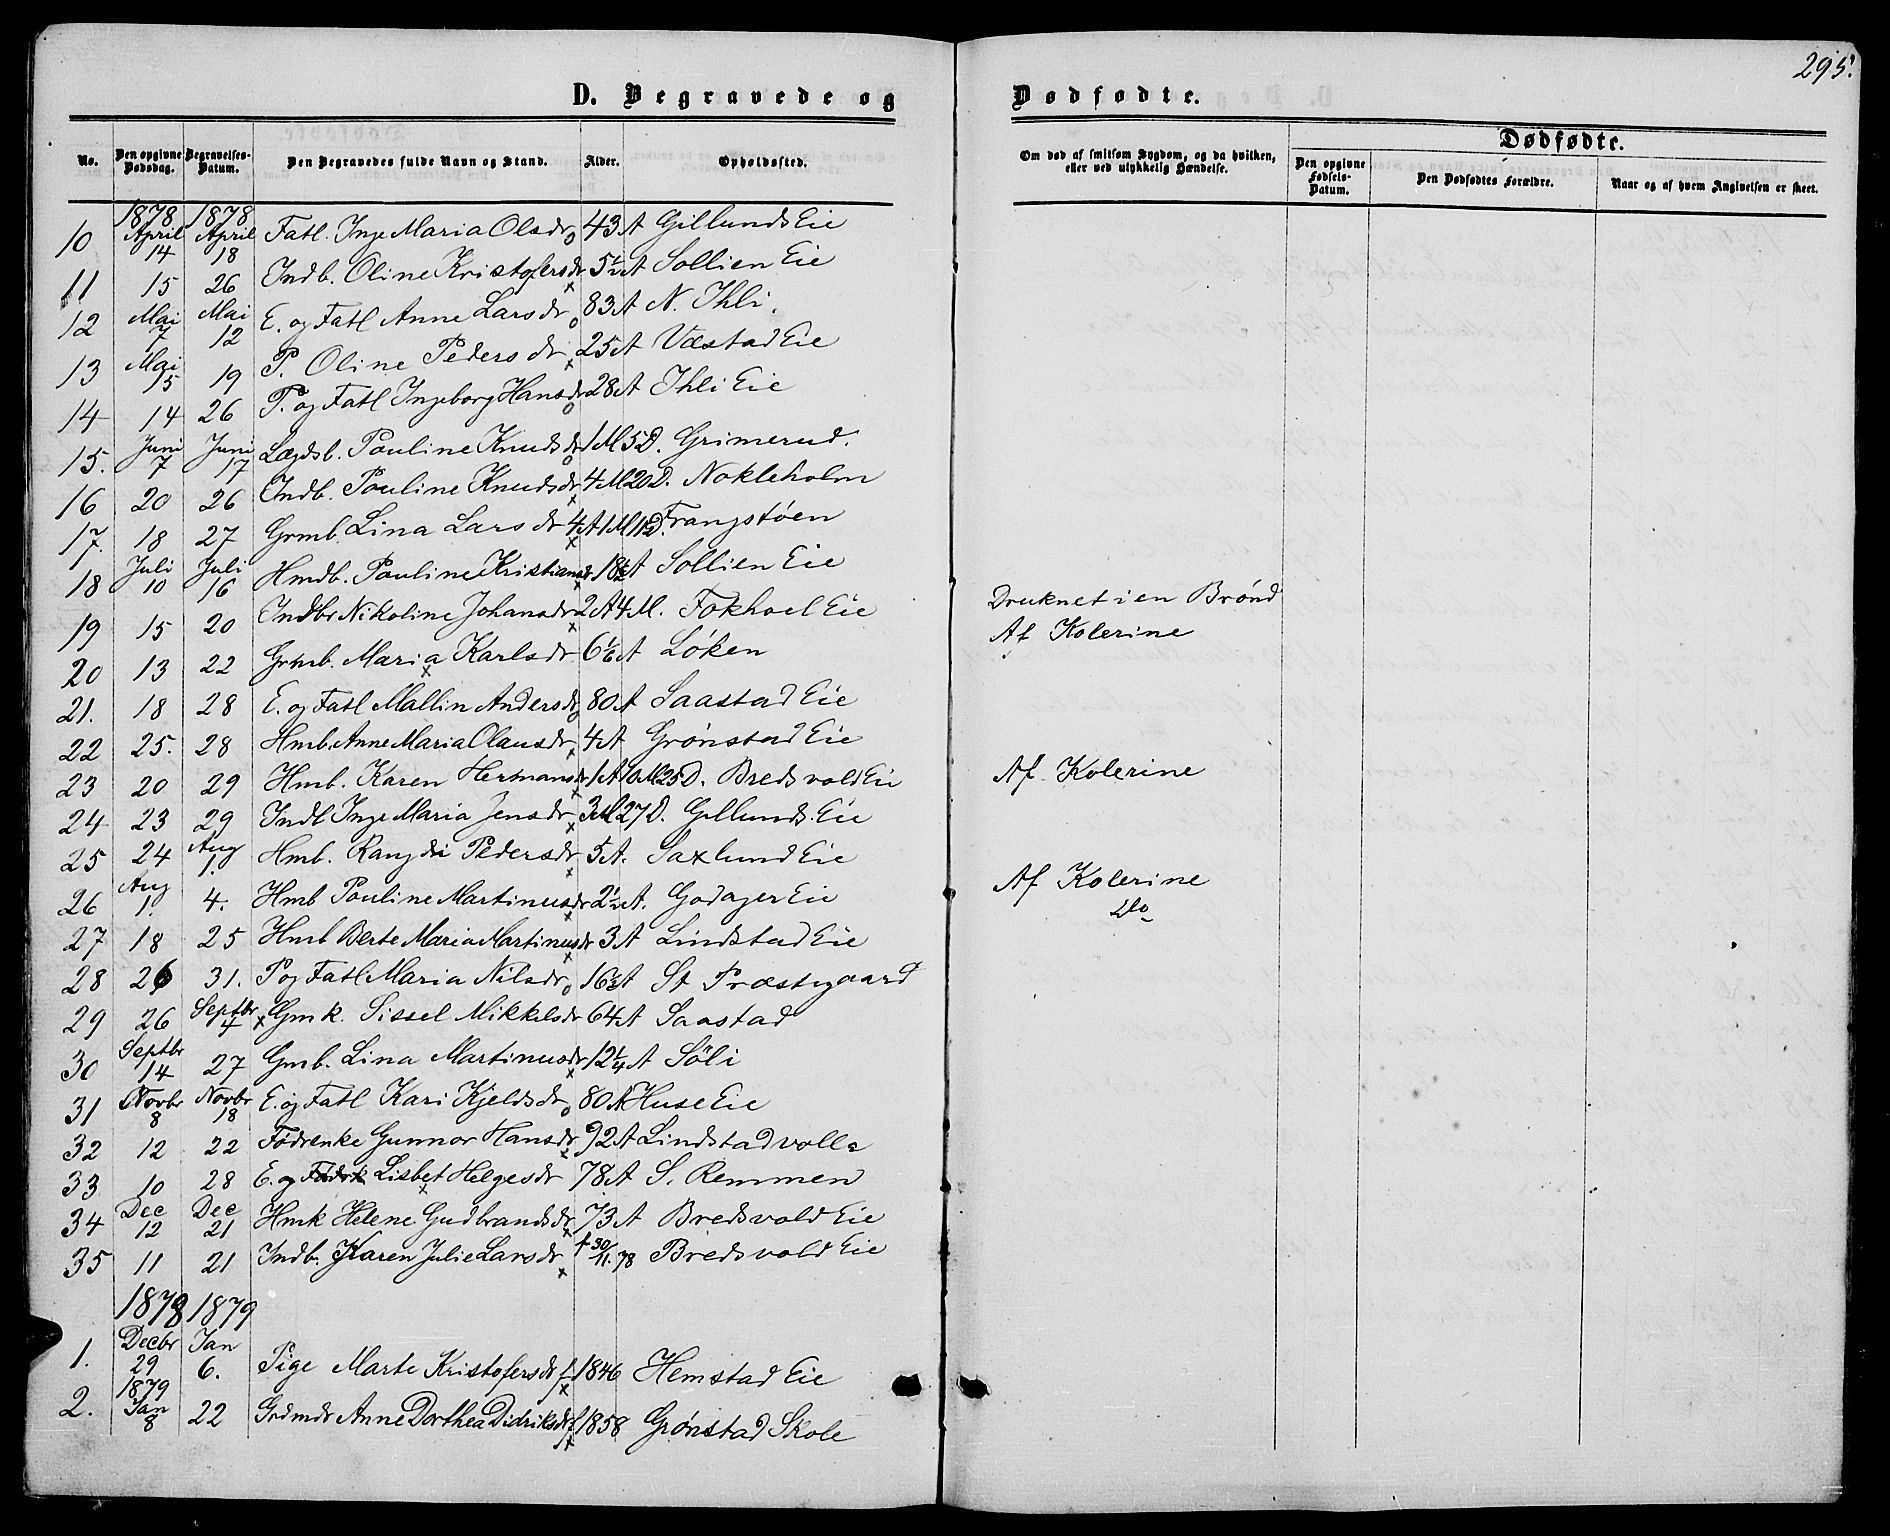 295.
D. Begravede og Dødfødte.
No. Den opgivne Dødsdag. Begravelses-Datum. Den Begravedes fulde Navn og Stand. Alder. Opholdssted. Om død af smitsom Sygdom, og da hvilken, eller ved ulykkelig Hændelse. Dødfødte.
Den opgivne Fødsels-Datum. Den Dødfødtes Forældre. Naar og af hvem Angivelsen er skeet.
1878 1878
10 April 14 April 18 Fatl. Inge Maria Olsdr 43 A Gillunds Eie
11 15 26 Indb. Oline Kristofersdr 5½ A Sollien Eie
12 Mai 7 Mai 12 E. og Fatl Anne Larsdr 83 A N. Ihli.
13 Mai 15 19 P. Oline Pedersdr 25 A Væstad Eie
14 14 26 P. og Fatl Ingeborg Hansdr 28 A Ihli Eie
15. Juni 7 Juni 17 Lægdsl. Pauline Knudsdr 1 M 5 D. Grimerud.
16 20 26 Indb. Pauline Knudsdr 4 M 20 D. Nokleholm
17. 18 27 Grmb. Lina Larsdr 4 A 1 M 11 D. Frangstøen
18 Juli 10 Juli 16 Hmdb. Pauline Kristiansdr 18½ A Sollien Eie
19 15 20 Indbr Nikoline Johansdr 2 A 4 M. Fokhoel Eie Druknet i en Brønd
20 13 22 Grmb. Maria Karlsdr 6 1/6 A Løken Af Kolerine
21. 18 28 E. og Fatl Mallin Andersdr 80 A Saastad Eie
22 25. 28 Hmb. Anne Maria Olausdr 4 A Grønstad Eie
23 20 29 Hmb. Karen Hermansdr 1 A 10 M 25 D. Bredsvold Eie Af Kolerine
24 23 29 Indl Inge Maria Jensdr 3 M 27 D. Gillunds Eie
25 24 Aug 1. Hmb. Rangdi Pedersdr 5 A. Saxlund Eie
26 Aug 1. 4. Hmb Pauline Martinusdr 2½ A. Godager Eie Af Kolerine
27 18 25 Hmb Berte Maria Martinusdr 3 A Lindstad Eie Do
28 26 31. P og Fatl Maria Nilsdr 16½ A St Præstgaard
29 26 Septbr 4 Gmk. Sissel Mikkelsdr 64 A Saastad
30 Septbr 14 27 Gmb. Lina Martinusdr 12¼ A Söli
31 Novbr 8 Novbr 18 E. og Fatl Kari Kjeldsdr 80 A Huse Eie
32 12 22 Födrenke Gunnor Hansdr 92 A Lindstadvolla
33 10 28 E. og Lisbet Helgesdr 78 A S. Remmen
34 Dec 12 Dec 21 Hmk Helene Gudbrandsdr 73 A Bredsvold Eie
35 11 21 Indb. Karen Julie Larsdr f 30/11. 78 Bredsvold Eie
1878 1879
1. Decbr 29 Jan 6. Pige Marte Kristofersdr f. 1846 Hemstad Eie
2. 1879 Jan 8 22 Grdmdr Anne Dorthea Didriksdr f 1858 Grønstad Skole